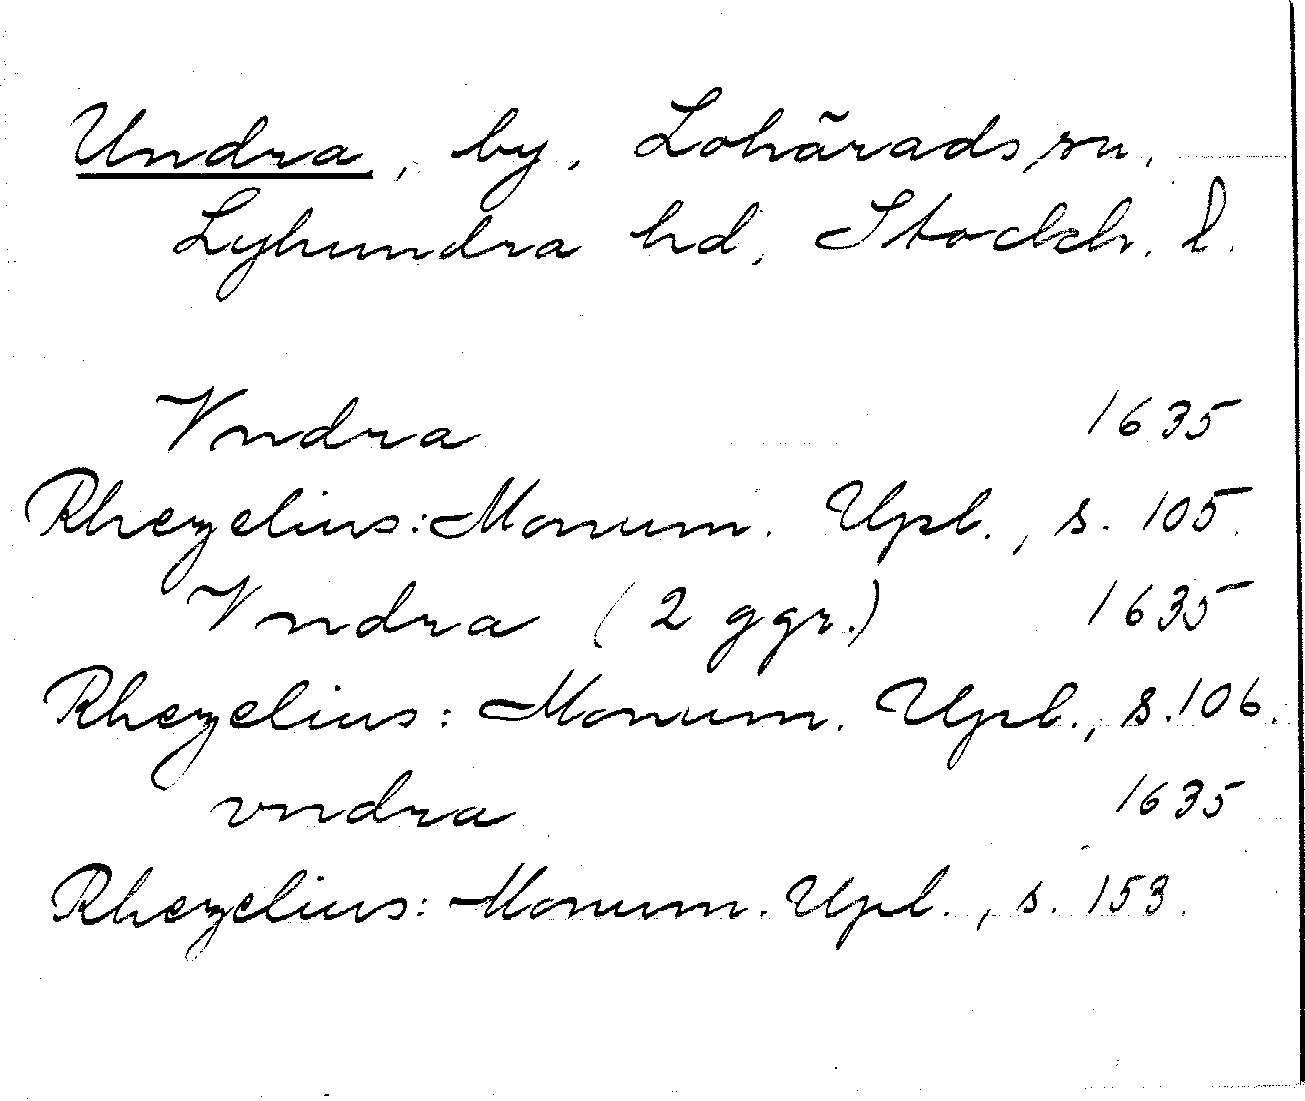 Undra, by, Lohärads sn,
Lyhundra hd, Stockh. l.
Vndra 1635
Rhezelius: Monum. Upl., s. 105.
Vndra (2 ggr.) 1635
Rhezelius: Monum. Upl., s. 106.
vndra 1635
Rhezelius: Monum. Upl., s. 153.